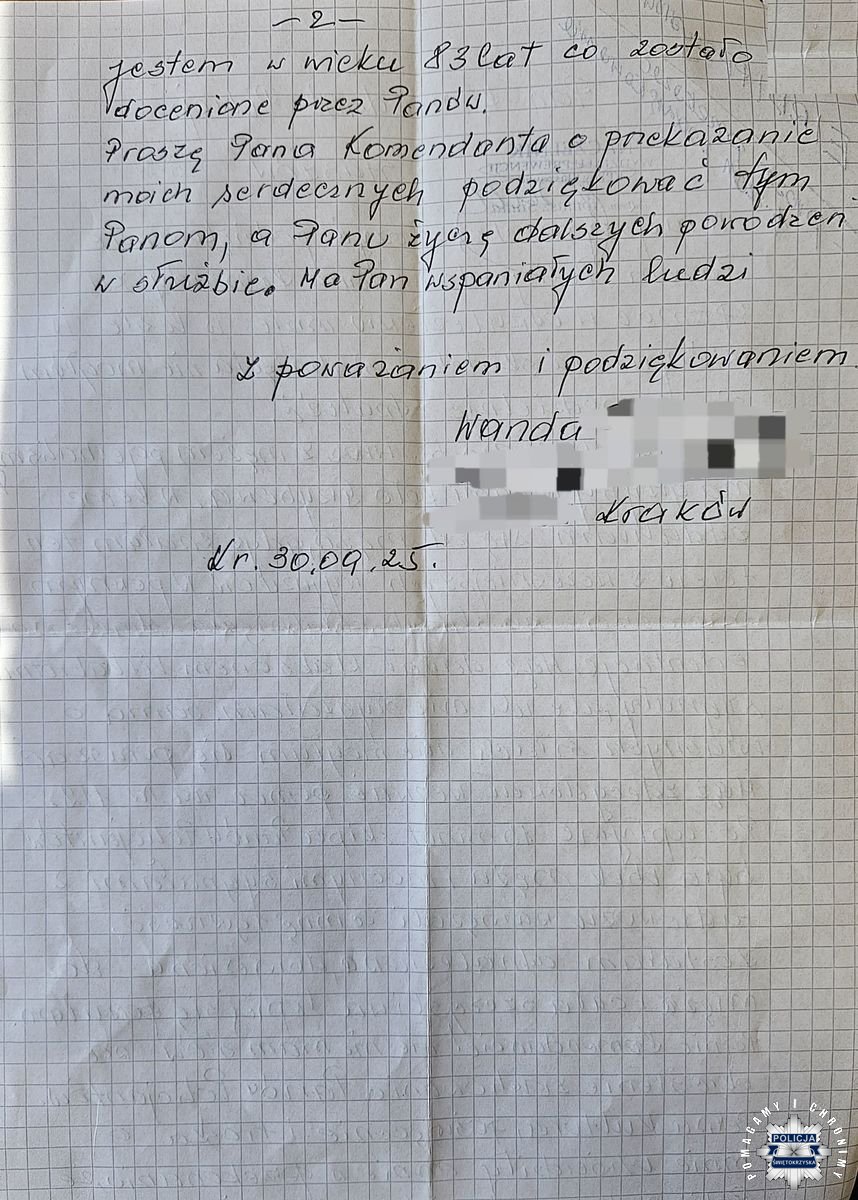 — 2 —
jestem w wieku 83 lat co zostało
docenione przez Panów.
Proszę Pana Komendanta o przekazanie
moich serdecznych podziękować tym
Panom, a Panu życzę dalszych powodzeń
w służbie. Ma Pan wspaniałych ludzi
Z poważaniem i podziękowaniem.
Wanda
Kraków
Kr. 30.09.25.
POMAGAMY I CHRONIMY
POLICJA
ŚWIĘTOKRZYSKA